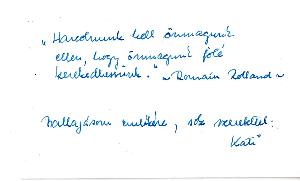 „Harcolnunk kell önmagunk
ellen, hogy önmagunk fölé
kerekedhessünk." ~ Romain Rolland ~
emlékére, sok szeretettel:
Kati